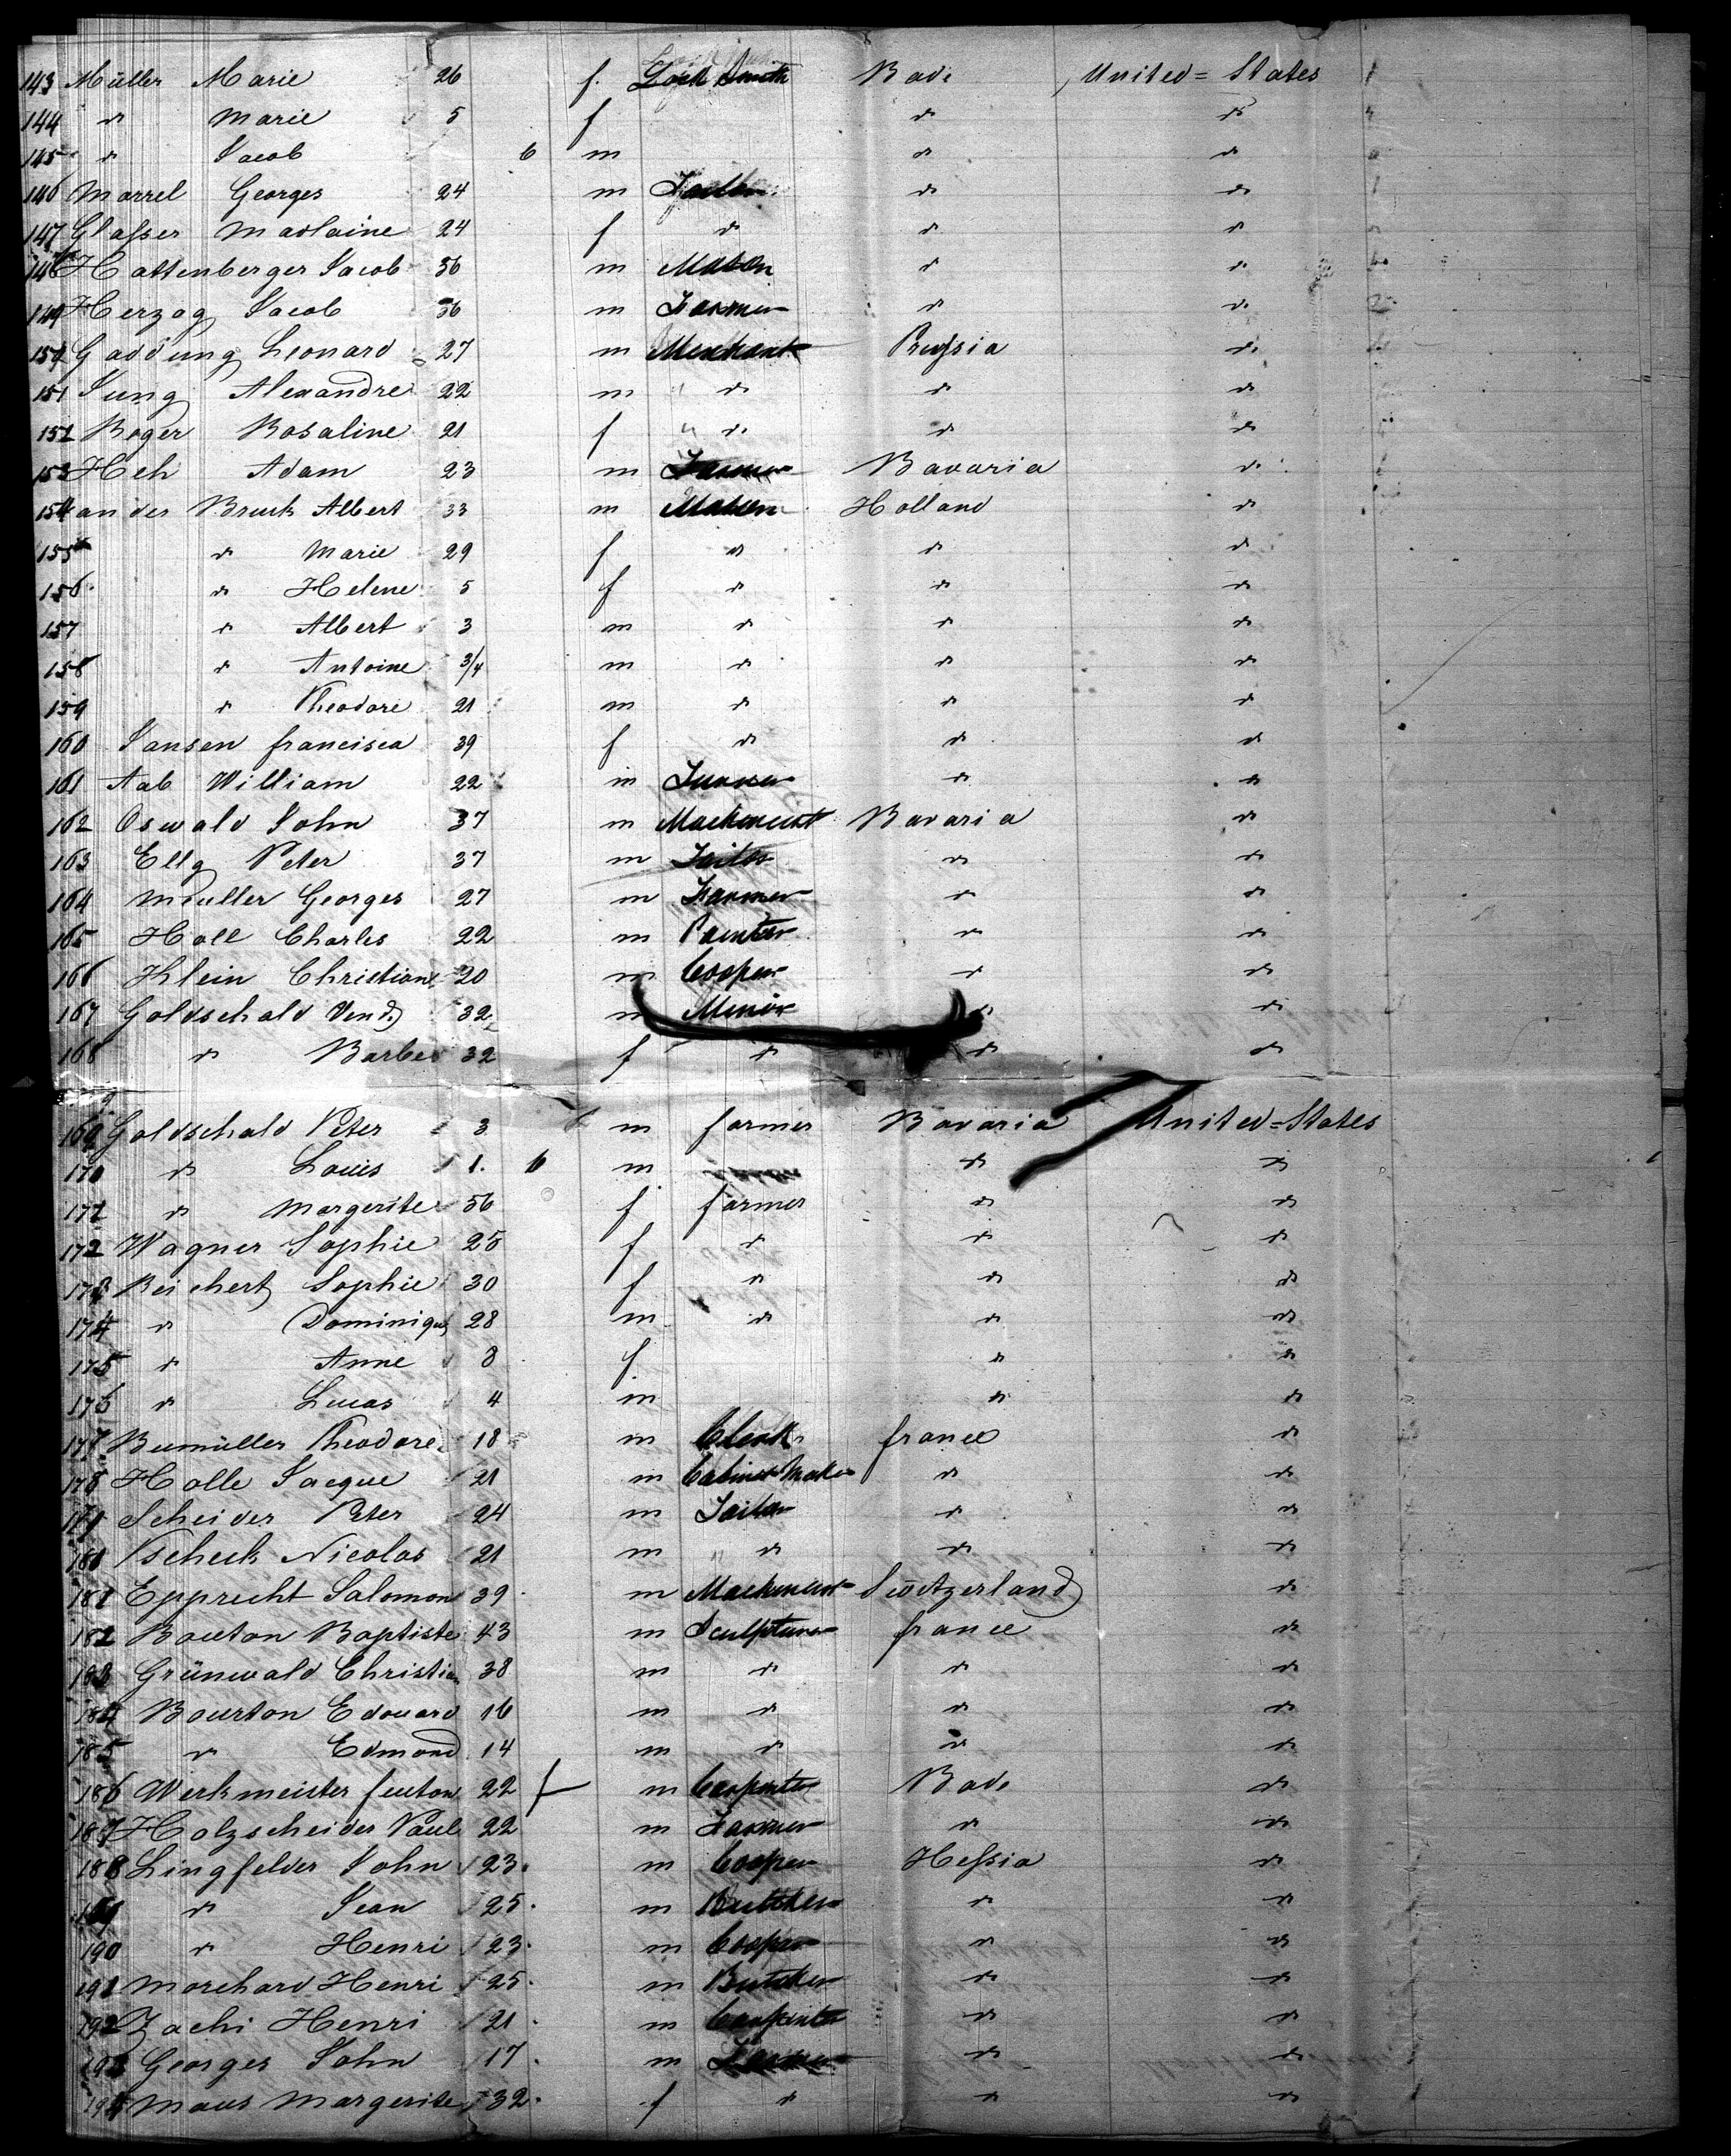 143 Müller Marie 26 f. Lock Smith Bade United=States
144 d° Marie 5 f d° d°
145 d° Jacob 6 m d° d°
146 Marrel Georges 24 m Tailor d° d°
147 Glasser Madlaine 24 f d° d° d°
148 Hattenberger Jacob 36 m Mason d° d°
149 Herzog Jacob 36 m Farmer d° d°
150 Gaddung Leonard 27 m Merchant Prussia d°
151 Jung Alexandre 22 m d° d° d°
152 Roger Rosaline 21 f d° d° d°
153 Heh Adam 23 m Farmer Bavaria d°
154 an der Bruck Albert 33 m Mason Holland d°
155 d° Marie 29 f d° d° d°
156 d° Helene 5 f d° d° d°
157 d° Albert 3 m d° d° d°
158 d° Antoine 3/4 m d° d° d°
159 d° Theodore 21 m d° d° d°
160 Jansen francisca 39 f d° d° d°
161 Aab William 22 m d° d°
162 Oswald John 37 m Bavaria d°
163 Ellg Peter 37 m Tailor d° d°
164 Muller Georges 27 m Farmer d° d°
165 Holl Charles 22 m Painter d° d°
166 Klein Christian 20 m Cooper d° d°
167 Goldschald Vend 32 m Minor d° d°
168 d° Barbe 32 f d° d° d°
169 Goldschald Peter 3 m farmer Bavaria United=States
170 d° Louis 1. 6 m d° d°
171 d° Margerite 56 f farmer d° d°
172 Wagner Sophie 25 f d° d° d°
173 Reichert Sophie 30 f d° d° d°
174 d° Dominique 28 m d° d° d°
175 d° Anne 8 f d° d°
176 d° Lucas 4 m d° d°
177 Bumüller Theodore 18 m Clerk france d°
178 Holle Jacque 21 m Cabinet Maker d° d°
179 Scheider Peter 24 m Tailor d° d°
180 Pscheck Nicolas 21 m d° d° d°
181 Epprecht Salomon 39 m Switzerland d°
182 Bouton Baptiste 43 m Sculpturer france d°
183 Grünwald Christian 38 m d° d° d°
184 Bourton Edouard 16 m d° d° d°
185 d° Edmond 14 m d° d° d°
186 Werkmeister 22 m Carpenter Bade d°
187 Holzscheider Paul 22 m Farmer d° d°
188 Lingfelder John 23 m Cooper Hessia d°
189 d° Jean 25 m Butcher d° d°
190 d° Henri 23 m Cooper d° d°
191 Morchard Henri 25 m Butcher d° d°
192 Zachi Henri 21 m Carpenter d° d°
193 Georges John 17 m Farmer d° d°
194 Maus Margerite 32 f d° d° d°